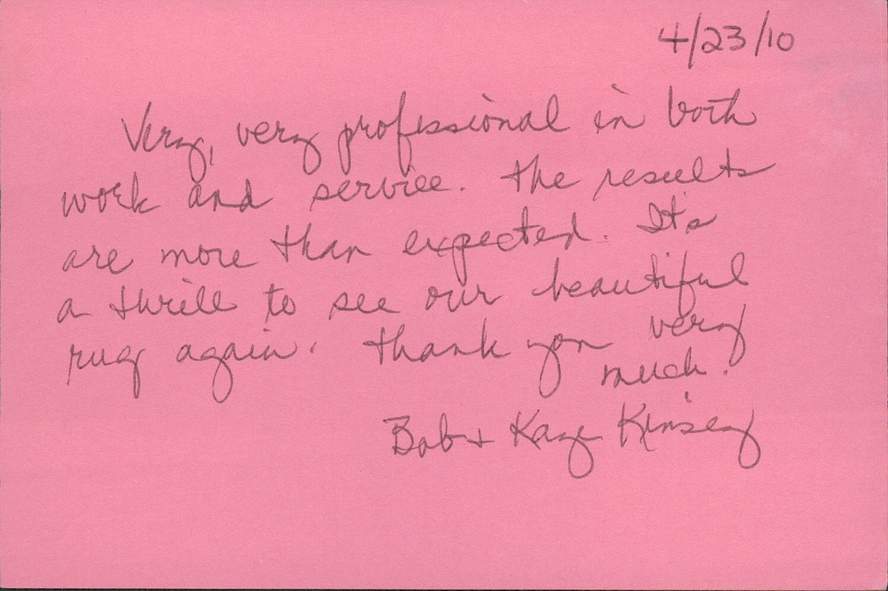 4/23/10
Very, very professional in both
work and service. The results
are more than expected. It's
a thrill to see our beautiful
rug again. Thank you very
much.
Bob + Kaye Kinsey